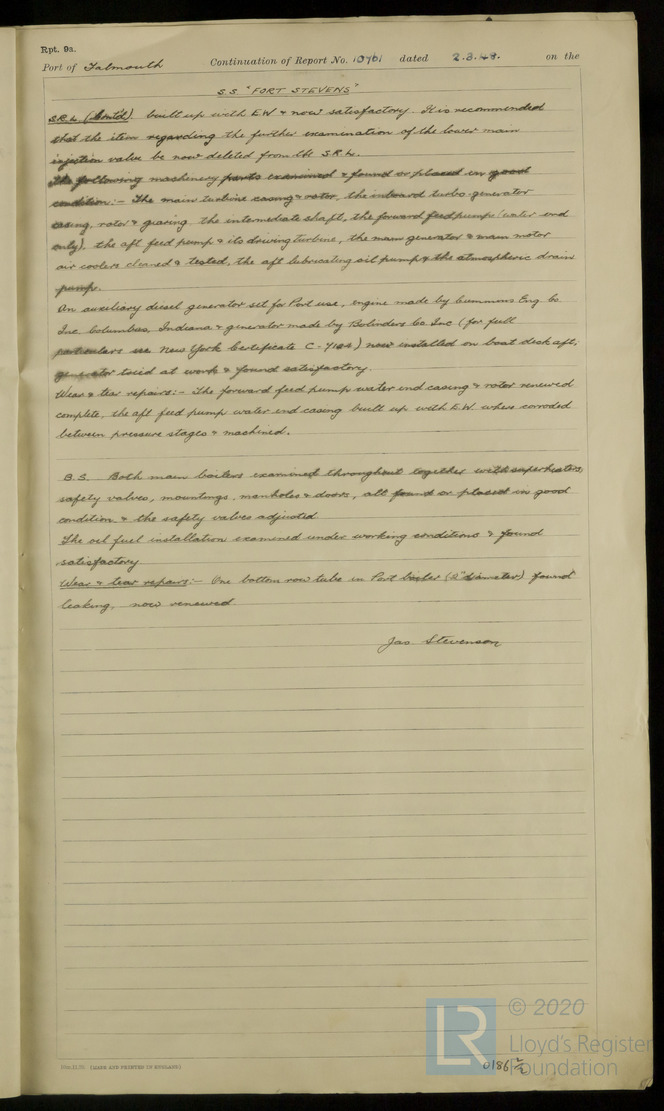 Rpt. 9a.
Port of Falmouth Continuation of Report No. 10761 dated 2.3.48. on the
S.S. "FORT STEVENS"
S.R.L. (Contd) built up with E.W & now satisfactory. It is recommended
that the item regarding the further examination of the lower main
injection valve be now deleted from the S.R.L.
The following machinery parts examined & found or placed in good
condition:- The main turbine casing & rotor, the inboard turbo-generator
casing, rotor & gearing the intermediate shaft, the forward feed pump (water end
only), the aft feed pump & its driving turbine, the main generator & main motor
air coolers cleaned & tested, the aft lubricating oil pump & the atmospheric drain
pump.
An auxiliary diesel generator set for Port use, engine made by Cummins Eng. Co
Inc. Columbus, Indiana & generator made by Bolinders Co. Inc (for full
particulars see New York Certificate C- ) now installed on boat deck aft,
generator tried at work & found satisfactory.
Wear & tear repairs:- The forward feed pump water end casing & rotor renewed
complete, the aft feed pump water end casing built up with E.W. where corroded
between pressure stages & machined.
B.S. Both main boilers examined throughout together with superheaters,
safety valves, mountings, manholes & doors, all found or placed in good
condition & the safety valves adjusted
The oil fuel installation examined under working conditions & found
satisfactory
Wear & tear repairs:- One bottom row tube in Port boiler (2" diameter) found
leaking, now renewed
Jas. Stevenson
(MADE AND PRINTED IN ENGLAND.)
© 2020
LR
Lloyd's Register
Foundation
0186